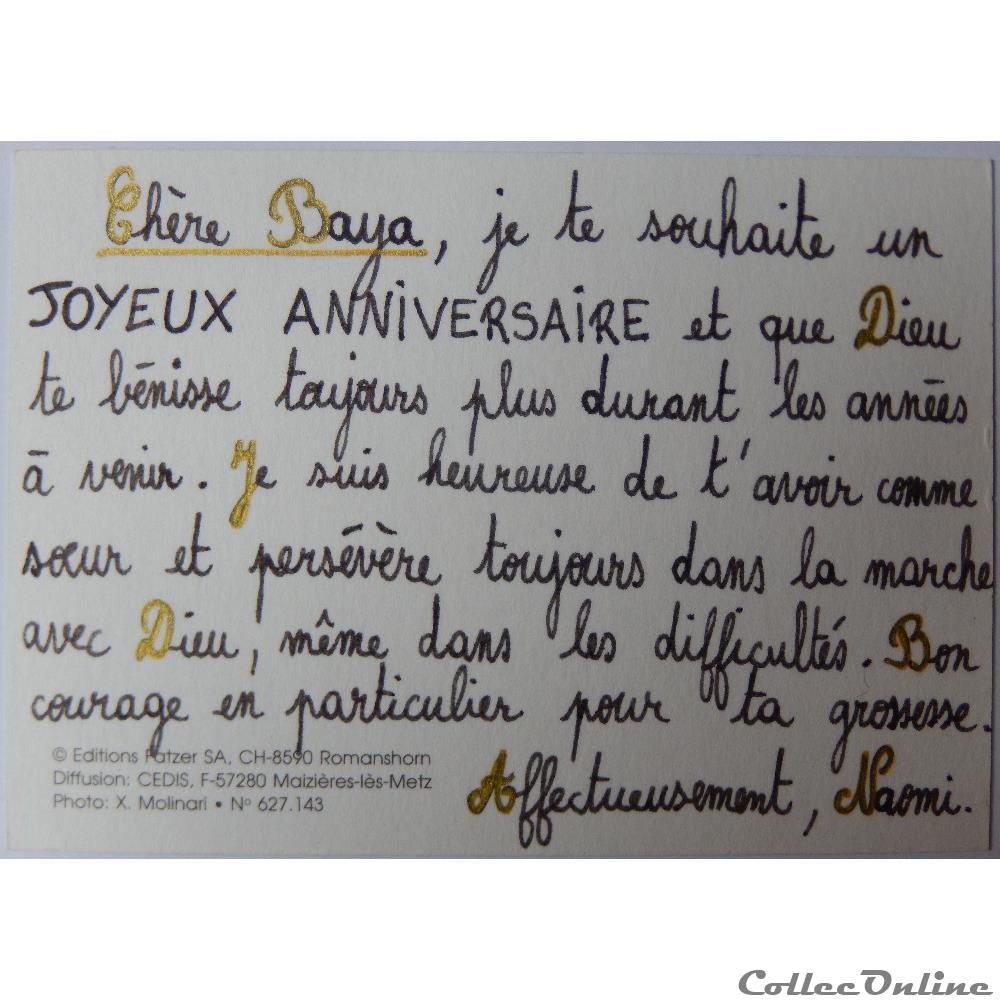 Chère Baya, je te souhaite un
JOYEUX ANNIVERSAIRE et que Dieu
te bénisse toujours plus durant les années
à venir. Je suis heureuse de t'avoir comme
sœur et persévère toujours dans la marche
avec Dieu, même dans les difficultés. Bon
courage en particulier pour ta grossesse.
© Editions Patzer SA, CH-8590 Romanshorn
Diffusion: CEDIS, F-57280 Maizières-lès-Metz
Photo: X. Molinari • Nº 627.143
Affectueusement, Naomi.
CollecOnline